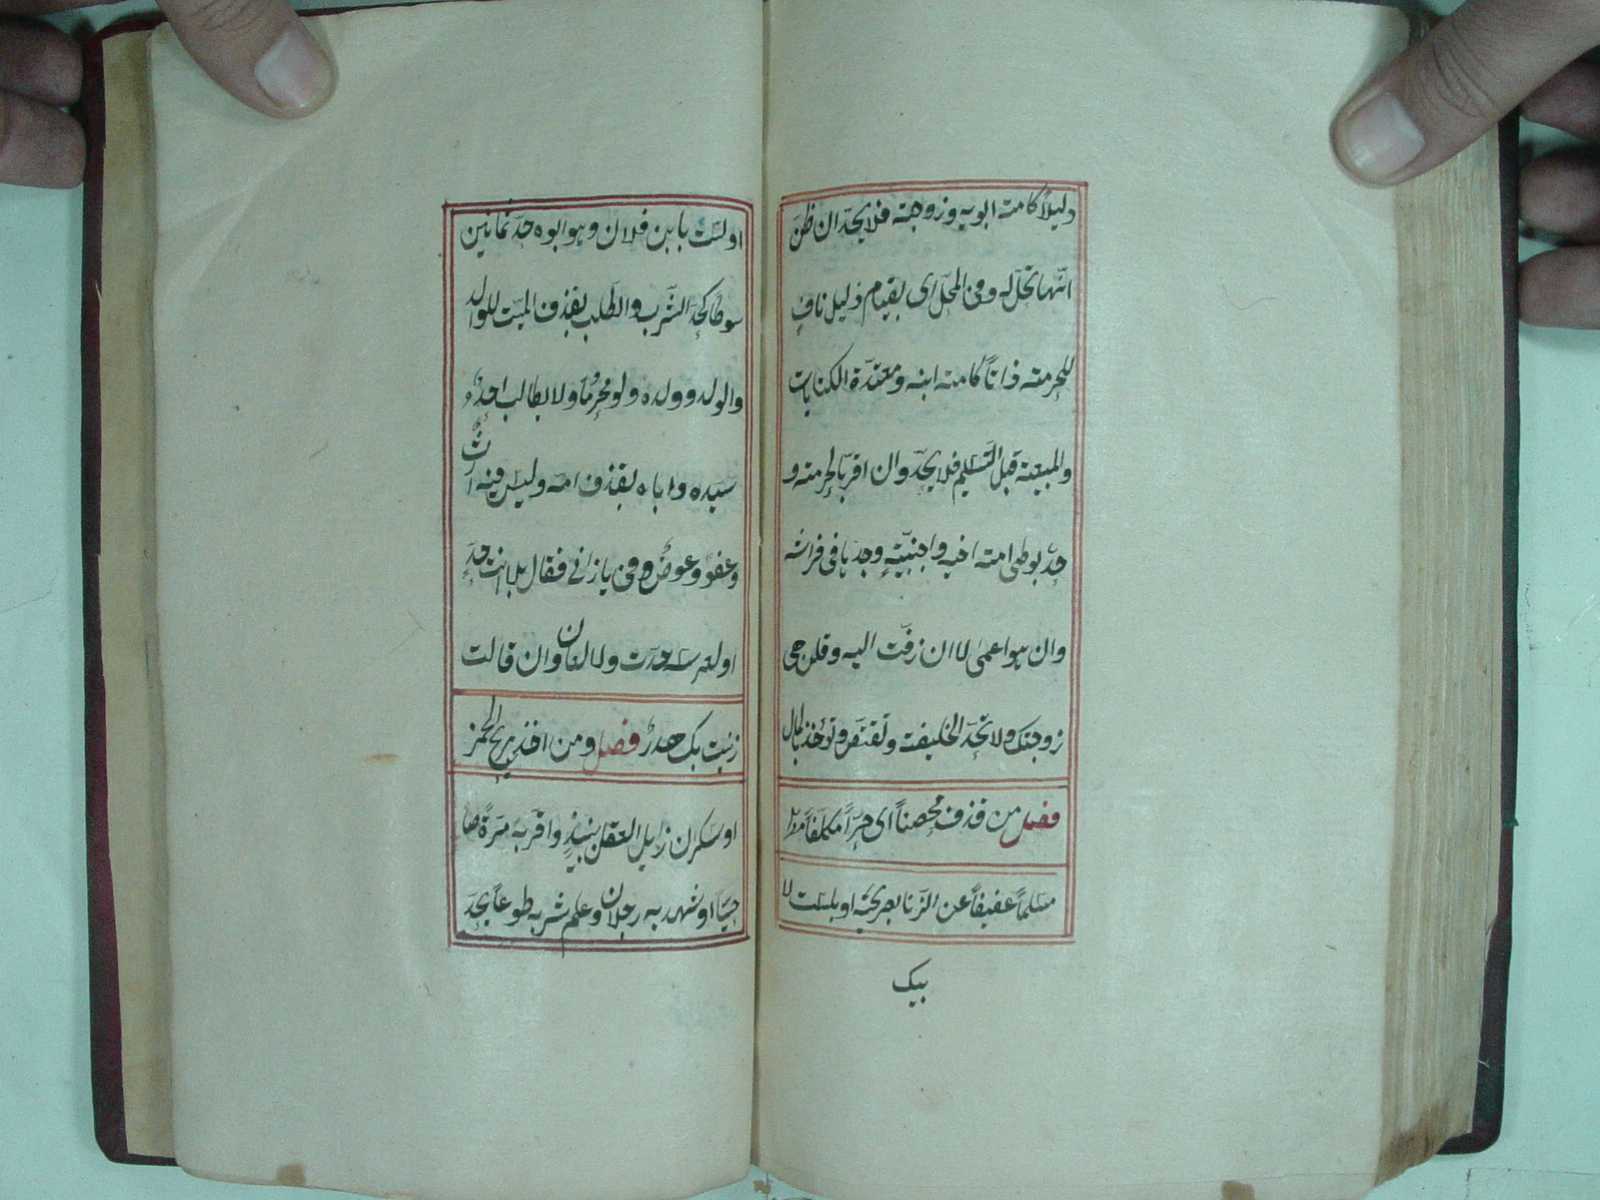 دليلاً كامة ابويه وزوجته فلا يحدّ ان ظنّ
انّها تحلّ له وفى المحلّ اى بقيام دليل نافٍ
للحرمة ذاتاً كامة ابنه ومعتدّة الكنايات
والمبيعة قبل التسليم فلا يحدّ وان اقرّ بالحرمة و
حدّ بوطى امة اخيه واجنبيّةٍ وجدها فى فراشه
وان هو اعمى لا ان زفّت اليه وقلن هى
زوجتك ولا يحدّ الخليفة وتقتصّ وتؤخذ بالمال
فصل من قذف محصناً اى حرّاً مكلّفاً
مسلماً عفيفاً عن الزنا بصريحه او بلست لا
بيك
او لست بابن فلان وهو ابوه حدّ ثمانين
سوطا كحدّ الشّرب والطّلب بقذف الميّت للوالد
والولد وولده ولو محرماً ولا يطالب احدٌ
سيّده واباه بقذف امّه وليس فيه ارث
وعفوٌ وعوضٌ وفى يا زانى فقال بلا انت حدّ
او لعرسه حدّت ولا لعان وان قالت
زنيت بك هدرٌ فصل ومن اخذ بريح الخمر
او سكران زايل العقل بنبيذٍ واقرّ به مرّةً
او شهد به رجلان وعلم شربه طوعاً يحدّ